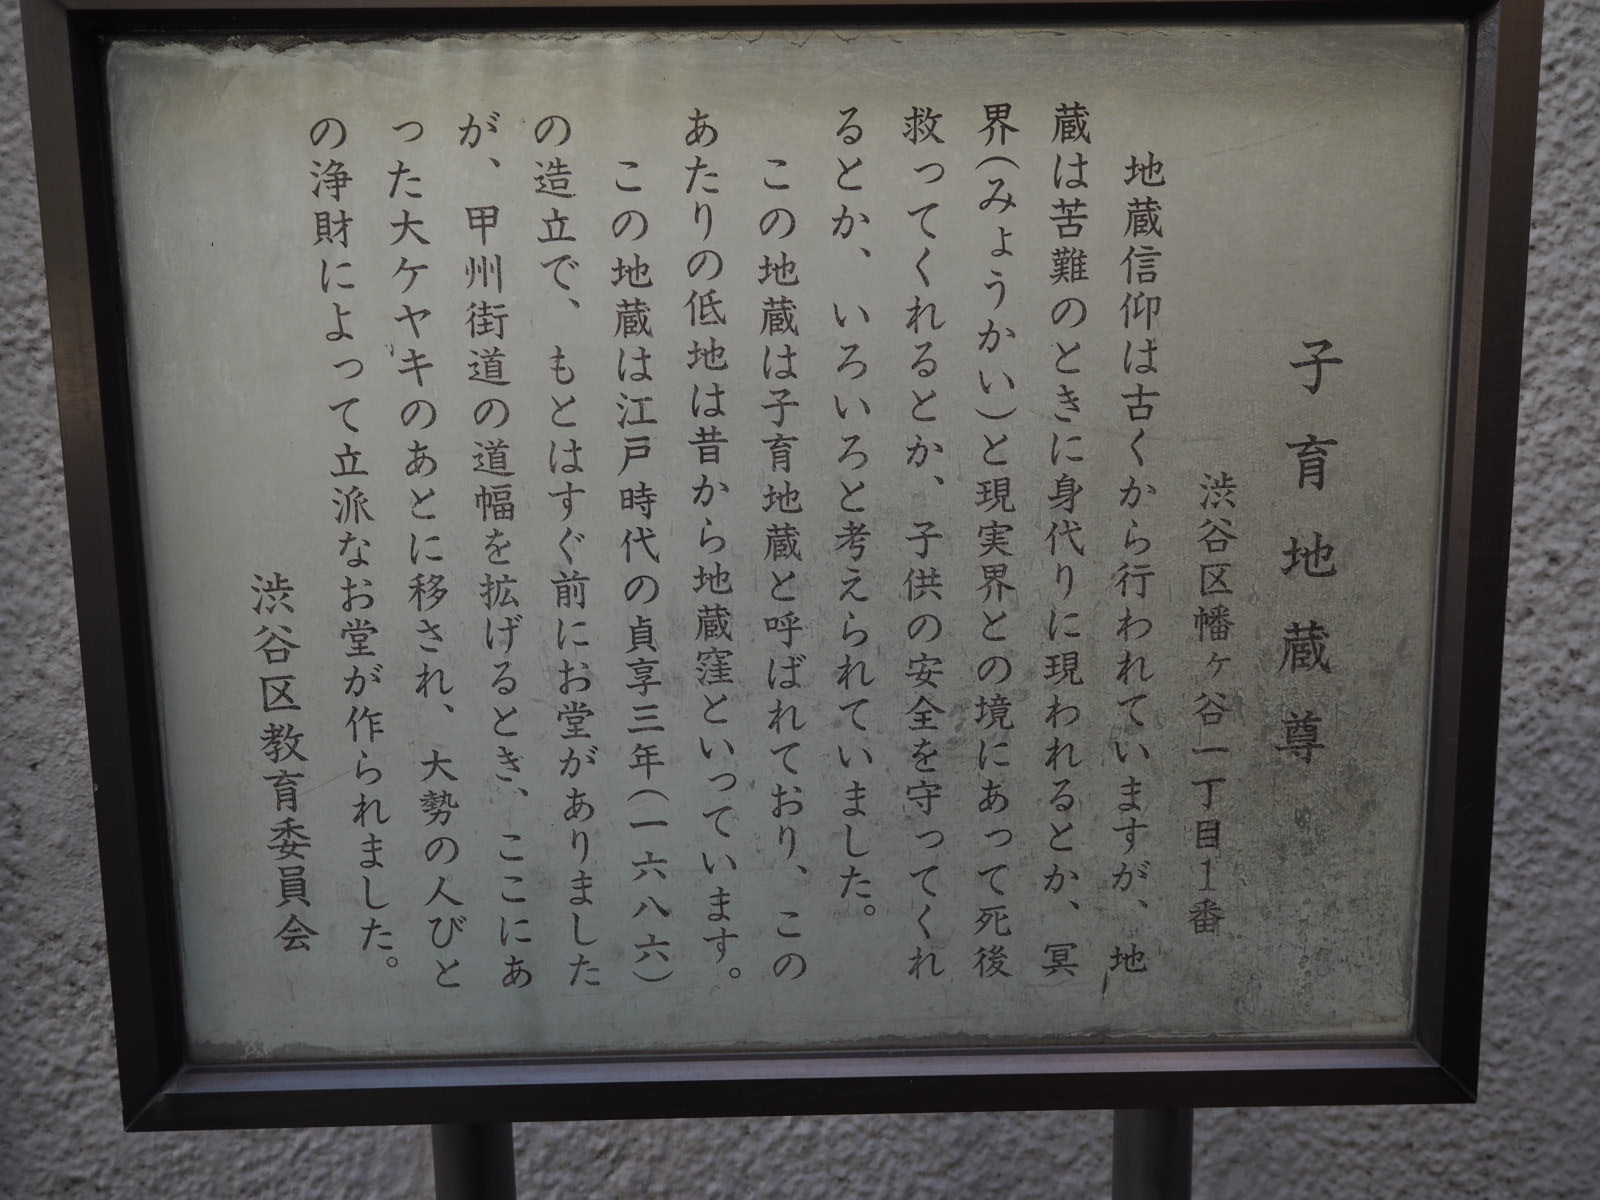 子育地蔵尊
渋谷区幡ヶ谷一丁目1番
地蔵信仰は古くから行われていますが、地
蔵は苦難のときに身代りに現われるとか、冥
界(みょうかい)と現実界との境にあって死後
救ってくれるとか、子供の安全を守ってくれ
るとか、いろいろと考えられていました。
この地蔵は子育地蔵と呼ばれており、この
あたりの低地は昔から地蔵窪といっています。
この地蔵は江戸時代の貞享三年(一六八六)
の造立で、もとはすぐ前にお堂がありました
が、甲州街道の道幅を拡げるとき、ここにあ
った大ケヤキのあとに移され、大勢の人びと
の浄財によって立派なお堂が作られました。
渋谷区教育委員会